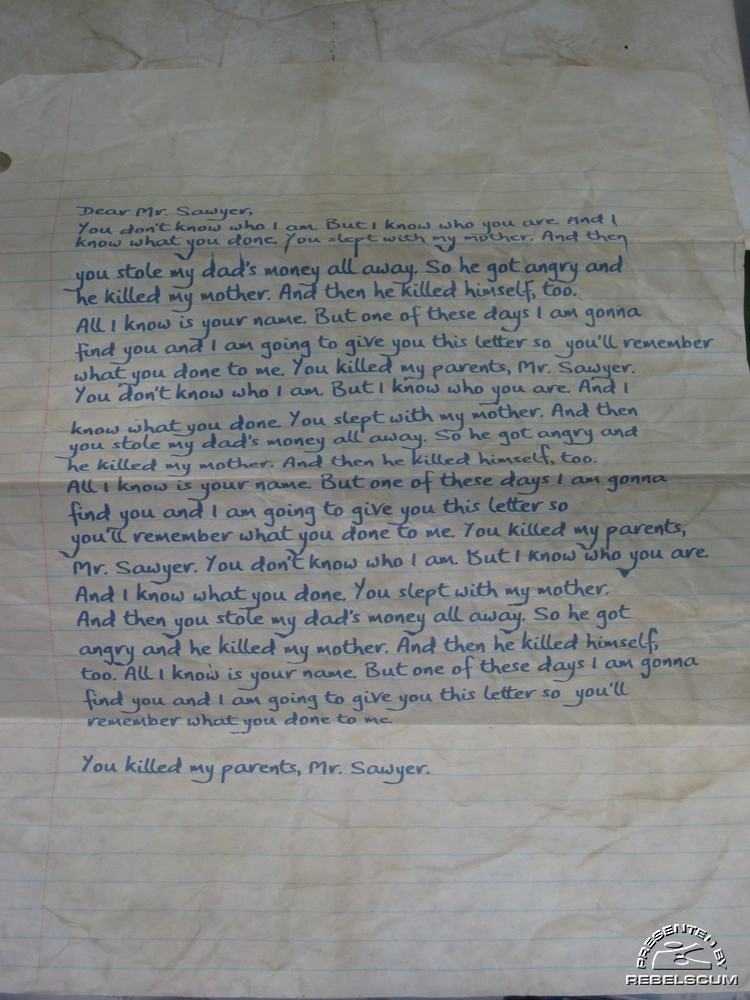 Dear Mr. Sawyer,
You don't know who I am. But I know who you are. And I
know what you done. You slept with my mother. And then
you stole my dad's money all away. So he got angry and
he killed my mother. And then he killed himself, too.
All I know is your name. But one of these days I am gonna
find you and I am going to give you this letter so you'll remember
what you done to me. You killed my parents, Mr. Sawyer.
You don't know who I am. But I know who you are. And I
know what you done. You slept with my mother. And then
you stole my dad's money all away. So he got angry and
he killed my mother. And then he killed himself, too.
All I know is your name. But one of these days I am gonna
find you and I am going to give you this letter so
you'll remember what you done to me. You killed my parents,
Mr. Sawyer. You don't know who I am. But I know who you are.
And I know what you done. You slept with my mother.
And then you stole my dad's money all away. So he got
angry and he killed my mother. And then he killed himself,
too. All I know is your name. But one of these days I am gonna
find you and I am going to give you this letter so you'll
remember what you done to me.
You killed my parents, Mr. Sawyer.
PRESENTED BY
REBELSCUM